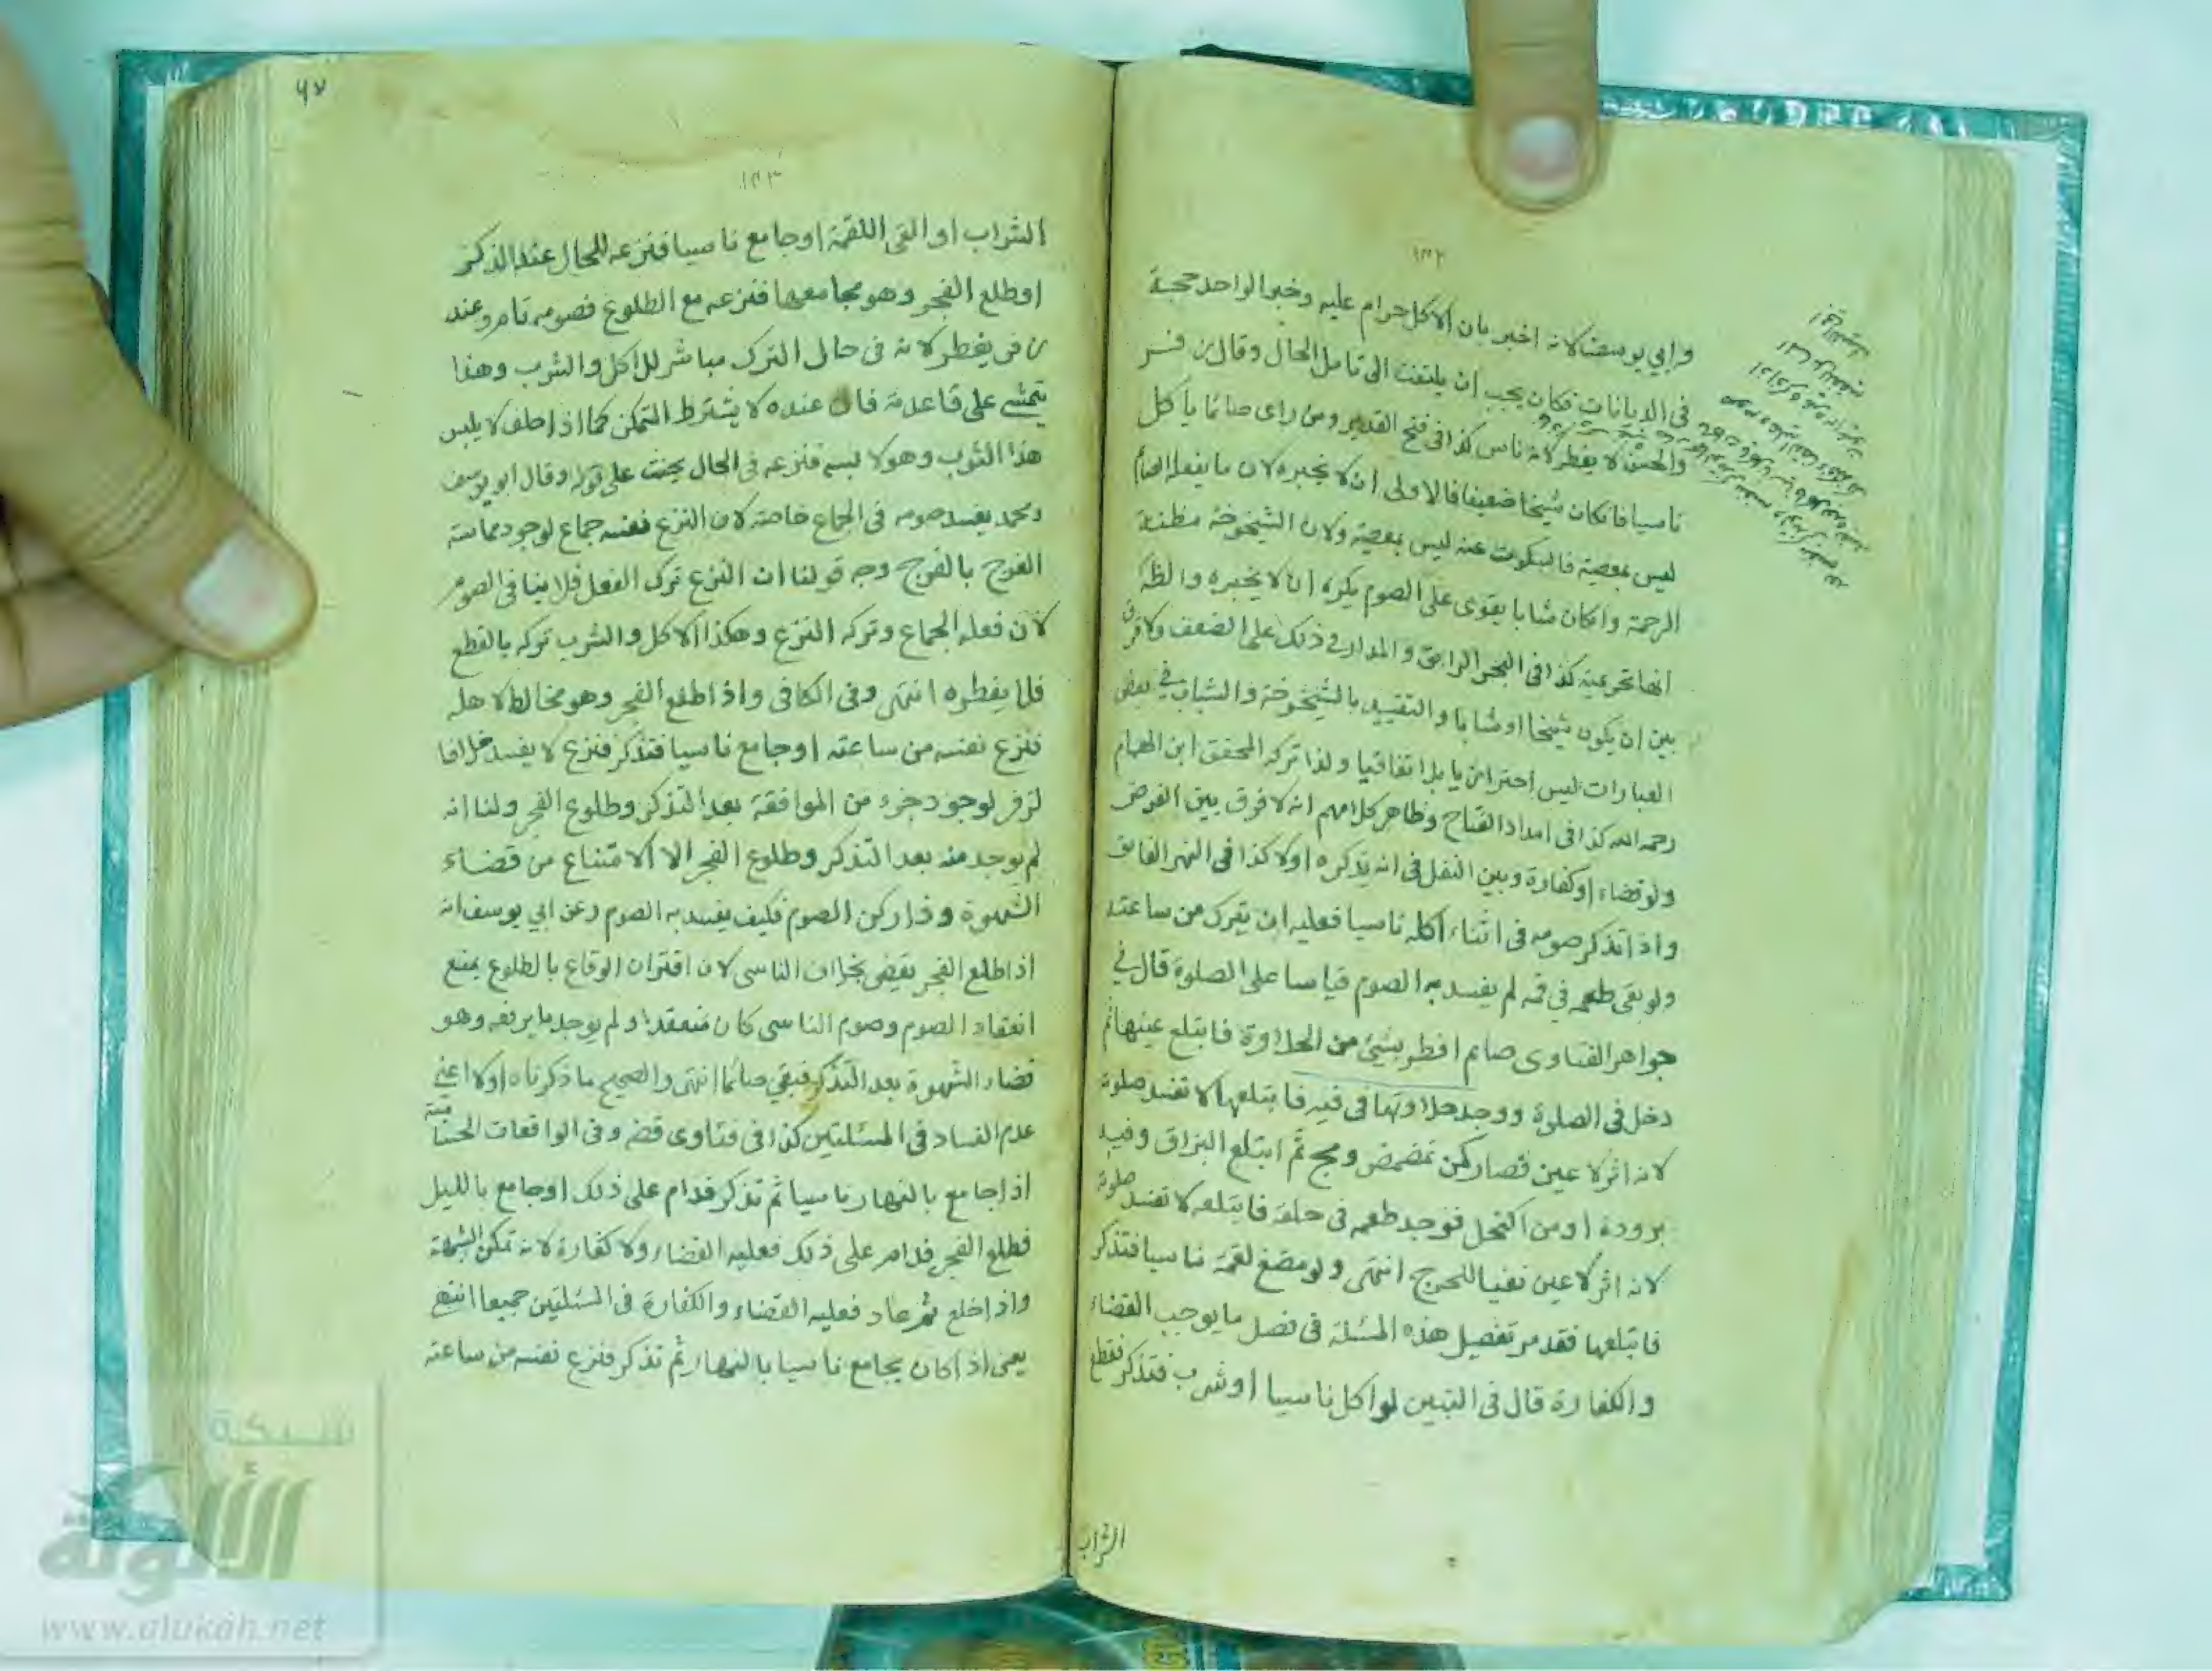 ١٣٢
وابي يوسف لانه اخبر بان الاكل حرام عليه وخبر الواحد حجة
في الديانات فكان يجب ان يلتفت الى تامل الحال وقال زفر
والحسن لا يفطر لانه ناس كذا في فتح القدير ومن راى صائما ياكل
ناسيا فان كان شيخا ضعيفا فالاولى ان لا يخبره لان ما يفعل الصائم
ليس بمعصية فالسكوت عنه ليس بمعصية ولان الشيخوخة مظنة
الرحمة وان كان شابا يقوى على الصوم يكره ان لا يخبره والظاهر
انها تحريمية كذا في البحر الرايق والمدار في ذلك على الضعف ولا فرق
بين ان يكون شيخا او شابا والتقييد بالشيخوخة والشباب في بعض
العبارات ليس احترازيا بل اتفاقيا ولذا تركه المحقق ابن الهمام
رحمه الله كذا في امداد الفتاح وظاهر كلامهم انه لا فرق بين الفرض
ولو قضاء او كفارة وبين النفل في انه يذكره او لا كذا في النهر الفايق
واذا تذكر صومه في اثناء اكله ناسيا فعليه ان يترك من ساعته
ولو بقي طعمه في فمه لم يفسد به الصوم قياسا على الصلوة قال في
جواهر الفتاوى صايم افطر بشيئ من الحلاوة فابتلع عينها ثم
دخل في الصلوة ووجد حلاوتها في فيه فابتلعها لا تفسد صلوته
لانه اثر لا عين فصار كمن تمضمض ومج ثم ابتلع البزاق وفيه
برودة او من اكتحل فوجد طعمه في حلقه فابتلعه لا تفسد صلوته
لانه اثر لا عين نفيا للحرج انتهى ولو مضغ لقمة ناسيا فتذكر
فابتلعها فقد مر تفصيل هذه المسئلة في فصل ما يوجب القضاء
والكفارة قال في التبين لو اكل ناسيا او شرب فتذكر فقطع
الشراب
٦٧
١٣٣
الشراب او القى اللقمة او جامع ناسيا فنزعه للحال عند الذكر
او طلع الفجر وهو مجامعها فنزعه مع الطلوع فصومه تام وعند
زفر يفطر لانه في حال الترك مباشر للاكل والشرب وهذا
يتمشى على قاعدته فان عنده لا يشترط التمكن كما اذا حلف لا يلبس
هذا الثوب وهو لابسه فنزعه في الحال يحنث على قوله وقال ابو يوسف
ومحمد يفسد صومه في الجماع خاصة لان النزع نفسه جماع لوجود مماسة
الفرج بالفرج وجه قولنا ان النزع ترك الفعل فلا ينافي الصوم
لان فعله الجماع وتركه النزع وهكذا الاكل والشرب تركه بالقطع
فلا يفطره انتهى وفي الكافي واذا طلع الفجر وهو مخالط لاهله
فنزع نفسه من ساعته او جامع ناسيا فتذكر فنزع لا يفسد خلافا
لزفر لوجود جزء من الموافقة بعد التذكر وطلوع الفجر ولنا انه
لم يوجد منه بعد التذكر وطلوع الفجر الا الامتناع من قضاء
الشهوة وذا ركن الصوم فكيف يفسد به الصوم وعن ابي يوسف انه
اذا طلع الفجر يقضي بخلاف الناسى لان اقتران الوقاع بالطلوع يمنع
انعقاد الصوم وصوم الناسى كان منعقدا ولم يوجد ما يرفعه وهو
قضاء الشهوة بعد التذكر فبقي صائما انتهى والصحيح ما ذكرناه اولا اعني
عدم الفساد في المسئلتين كذا في فتاوى قضه وفي الواقعات الحسامية
اذا جامع بالنهار ناسيا ثم تذكر فدام على ذلك او جامع بالليل
فطلع الفجر فدام على ذلك فعليه القضاء ولا كفارة لانه تمكن الشبهة
واذا خلع ثم عاد فعليه القضاء والكفارة في المسئلتين جميعا انتهى
يعني اذا كان يجامع ناسيا بالنهار ثم تذكر فنزع نفسه من ساعته
شبكة
الألوكة
www.alukah.net